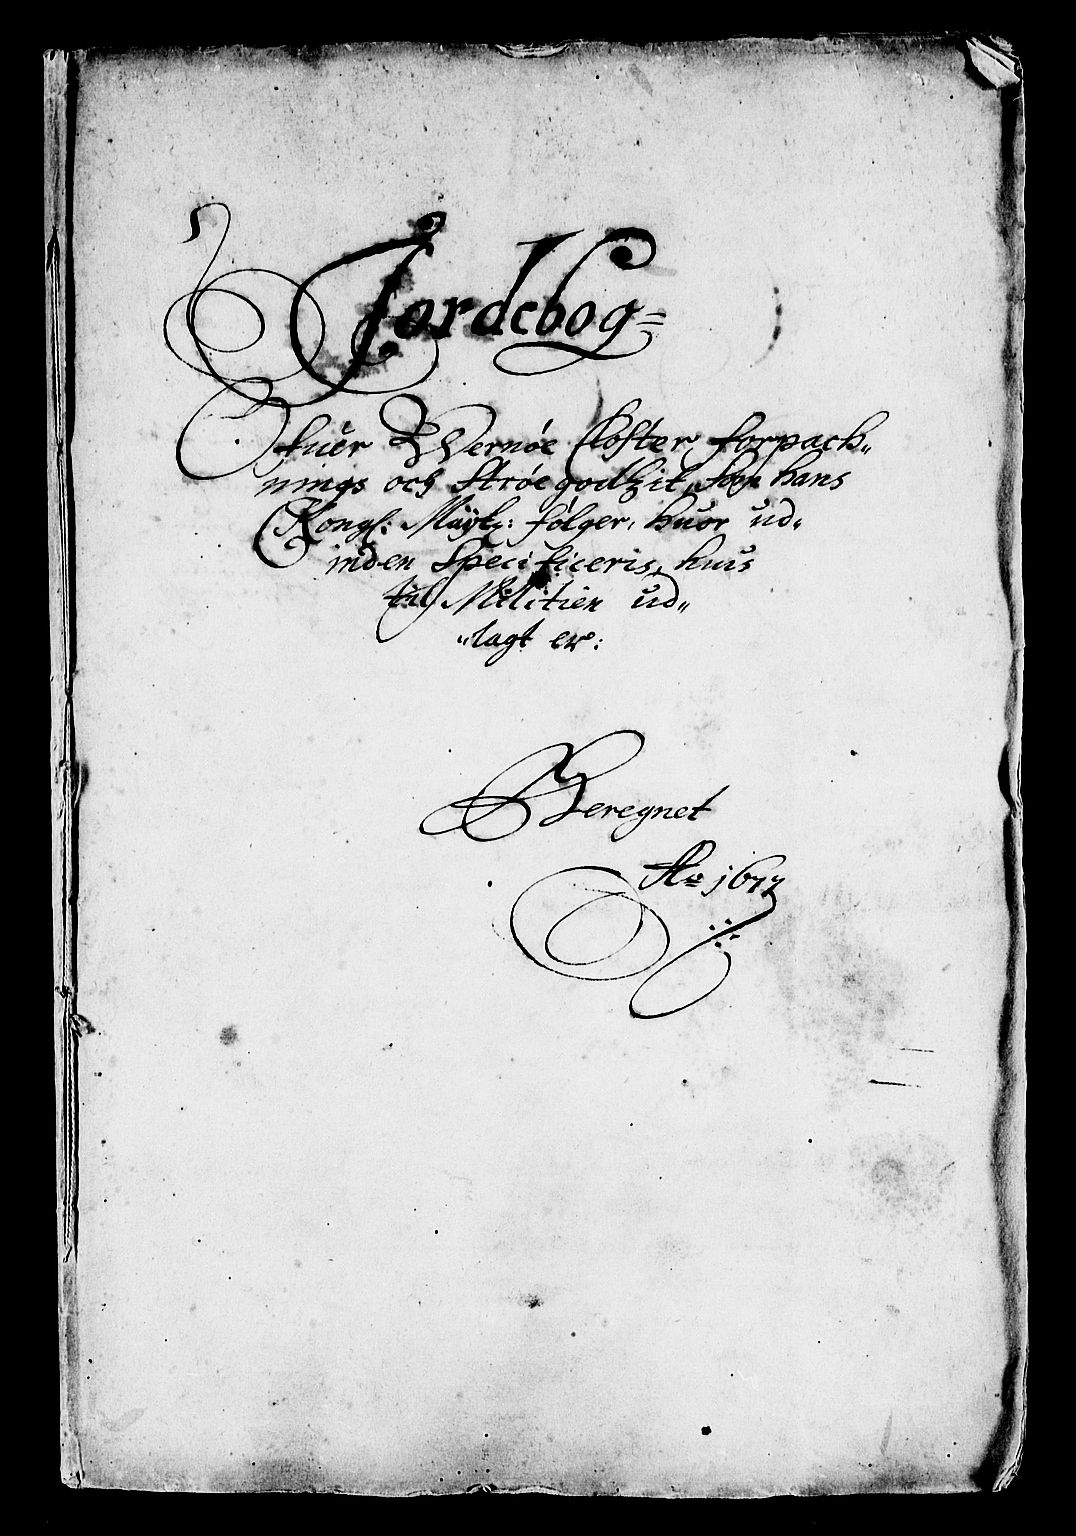 Jordebog=
Ofuer Wernøe Closter forpach„
nings och Strøegodtzit, Som hans
Kongl: Maÿtz: følger, huor ud„
inden Specificeris, huis
til Militien ud„
„lagt er:
Beregnet
Ao 1677